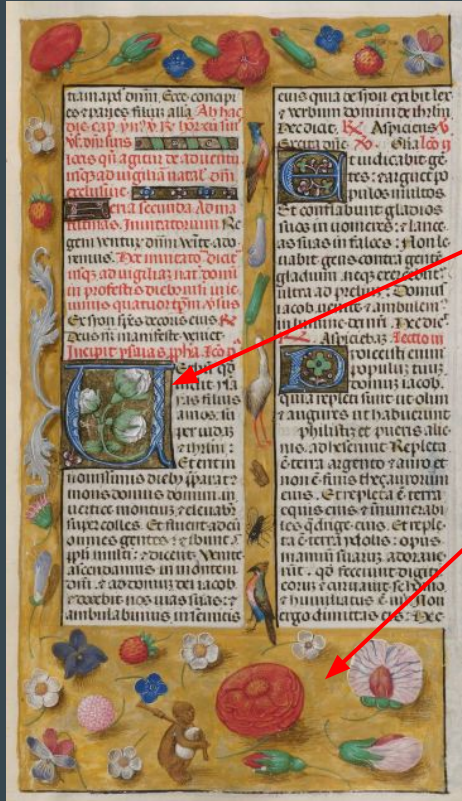 Ecce concipi
es & paries filiu alla Ab hac
locis qu agitur de aduentu
usq ad uigilia natal dni
eria secunda Ad ma
Inuitatorium Re
gem dnm ado
remus. Hoc inuitato dicit
usq ad uigilia nat domi
in profestis diebus
Ex syon spes decoris eius R
Deus nr manifeste veniet
Incipit ysaias ppha
filius
amos. su
per iuda
& ihrlm :
Et erit in
nouissimis dieb
mons domus domini in
uertice montiu & eleuab
super colles. Et fluent ad eu
omnes gentes : & ibunt p
pli multi : & dicent. Venite
ascendamus in montem
dni . & ad domu dei iacob .
& docebit nos uias suas : &
ambulabimus in semitis
eius quia de syon exibit lex
& verbum domini de ihrlm
Hec dicit. R. Aspiciens V.
Et iudicabit ge
tes : & arguet po
pulos multos
Et conflabunt gladios
suos in uomeres : & lance
as suas in falces : Non le
uabit gens contra gente
gladium . neq exercebunt
ultra ad preliu . Domus
iacob uenite & ambulem
in lumine dei nri . Hec dic
R. Aspiciebam. Lectio iii
Proiecisti enim
populu tuu .
domu iacob .
quia repleti sunt ut olim
& augures ut habuerunt
philistiim & pueris alie
nis . adheserunt Repleta
e terra argento & auro et
non e finis thezaurorum
eius . Et repleta e terra
equis eius & innumerabi
les qdrige eius . Et reple
ta e terra ydolis : opus
manuu suaru adoraue
rut . qd fecerunt digiti
eoru & curuauit se homo .
& humiliatus e uir Non
ergo dimittas eis : Hec